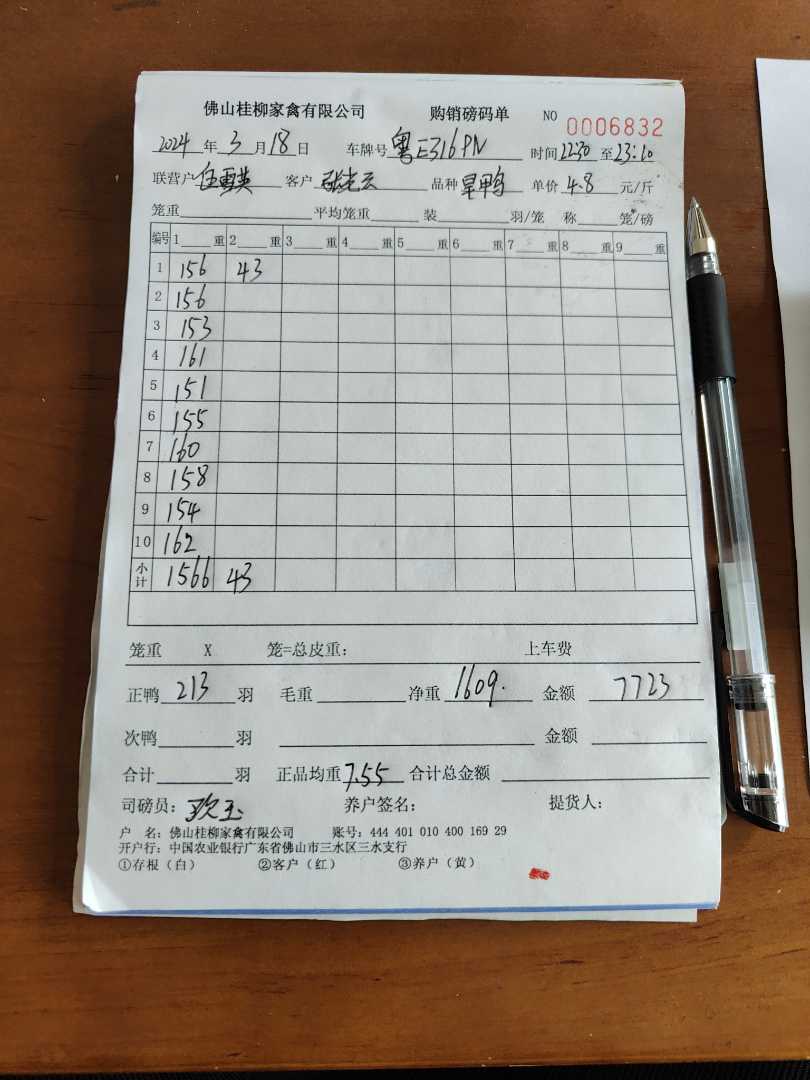 佛山桂柳家禽有限公司 购销磅码单 NO 0006832
2024年3月18日 车牌号 粤E316PN 时间22:30至23:10
联营户伍雪英 客户 张志云 品种 旱鸭 单价 4.8 元/斤
笼重 平均笼重 装 羽/笼 称 笼/磅
编号 1 重 2 重 3 重 4 重 5 重 6 重 7 重 8 重 9 重
1 156 43
2 156
3 153
4 161
5 151
6 155
7 160
8 158
9 154
10 162
小计 1566 43
笼重 X 笼=总皮重: 上车费
正鸭 213 羽 毛重 净重 1609. 金额 7723
次鸭 羽 金额
合计 羽 正品均重 7.55 合计总金额
司磅员: 养户签名: 提货人:
户 名: 佛山桂柳家禽有限公司 账号: 444 401 010 400 169 29
开户行: 中国农业银行广东省佛山市三水区三水支行
①存根(白) ②客户(红) ③养户(黄)